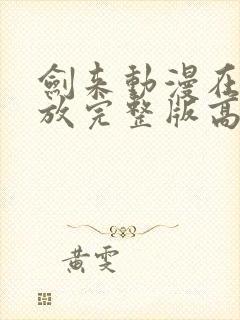 劍来動漫在
放完整版高
黄雯